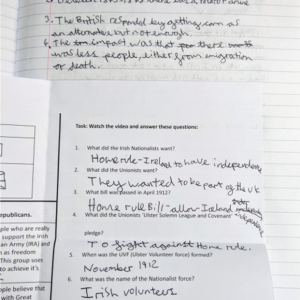 3. The British responded by getting corn as
an alternative but not enough.
4. The impact was that there
was less people, either from emigration
or death.
Task: Watch the video and answer these questions:
1. What did the Irish Nationalists want?
Home rule - Ireland to have independence
2. What did the Unionists want?
They wanted to be part of the UK
3. What bill was passed in April 1912?
Home rule Bill - allow Ireland
4. What did the Unionists 'Ulster Solemn League and Covenant'
pledge?
To fight against Home rule.
5. When was the UVF (Ulster Volunteer force) formed?
November 1912
6. What was the name of the Nationalist force?
Irish volunteers
epublicans.
ple who are really
support the Irish
an Army (IRA) and
n as freedom
This group uses
to achieve it's
ople believe that
with Great